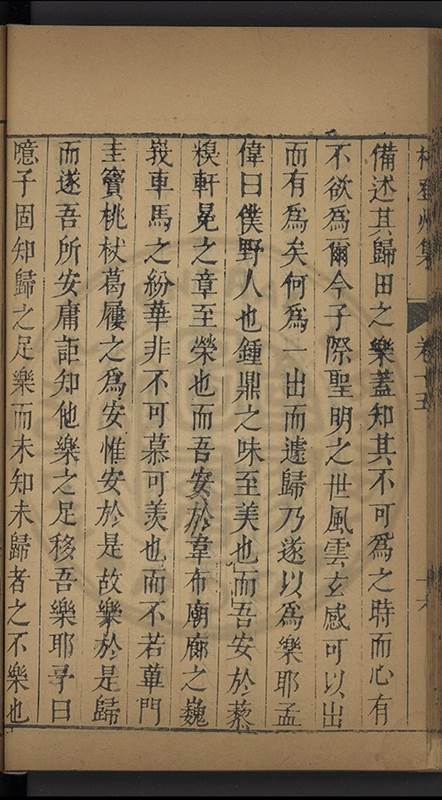 林登州集 卷十五 十六
備述其歸田之樂蓋知其不可爲之時而心有
不欲爲爾今子際聖明之世風雲玄感可以出
而有爲矣何爲一出而遽歸乃遂以爲樂耶孟
偉曰僕野人也鍾鼎之味至美也而吾安於藜
糗軒冕之章至榮也而吾安於韋布廟廊之巍
峩車馬之紛華非不可慕可羨也而不若蓽門
圭竇桃杖葛屨之爲安惟安於是故樂於是歸
而遂吾所安庸詎知他樂之足移吾樂耶予曰
噫子固知歸之足樂而未知未歸者之不樂也